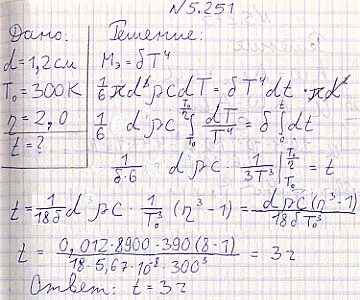 N5.251
Дано:
d = 1,2 см
T₀ = 300 К
η = 2,0
t = ?
Решение:
Mэ = δT⁴
1/6 πd³ρcdT = δT⁴dt · πd²
1/6 dρc ∫_{T₀}^{T₀/2} dT/T⁴ = δ ∫₀ᵗ dt
1/(δ·6) dρc · 1/(3T³) |_{T₀}^{T₀/2} = t
t = 1/(18δ) d ρc · 1/T₀³ (η³ - 1) = dρc(η³-1)/(18δT₀³)
t = 0,012·8900·390(8-1)/(18·5,67·10⁻⁸·300³) = 3 г
Ответ: t = 3 г